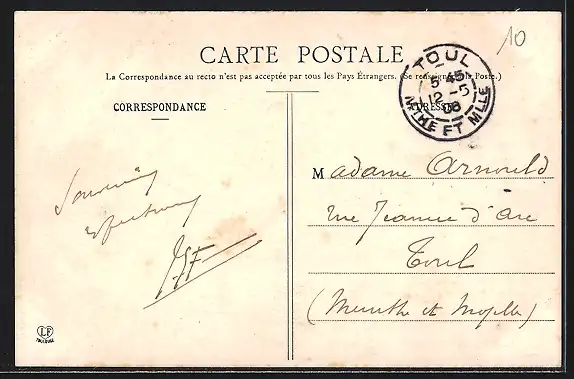 10
CARTE POSTALE
La Correspondance au recto n'est pas acceptée par tous les Pays Étrangers. (Se renseigner à la Poste.)
TOUL
5 45
12 -5
08
MTHE ET MLLE
CORRESPONDANCE
ADRESSE
Madame Arnould
rue Jeanne d'Arc
Toul
(Meurthe et Moselle)
Souvenir
affectueux
LF
TOULOUSE